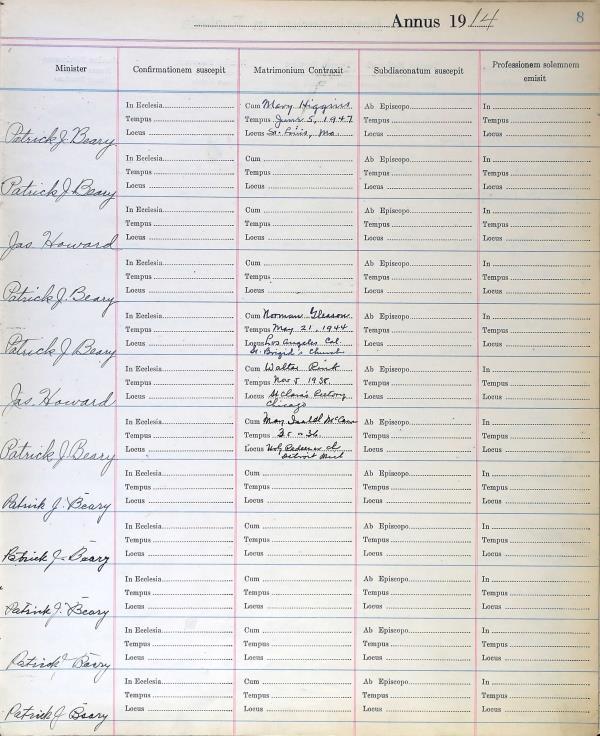 Annus 1914 8
Minister Confirmationem suscepit Matrimonium Contraxit Subdiaconatum suscepit Professionem solemnem emisit
In Ecclesia Cum Mary Higgins Ab Episcopo In
Tempus Tempus June 5, 1947 Tempus Tempus
Locus Locus St. Louis, Mo. Locus Locus
Patrick J. Beary
In Ecclesia Cum Ab Episcopo In
Tempus Tempus Tempus Tempus
Locus Locus Locus Locus
Patrick J. Beary
In Ecclesia Cum Ab Episcopo In
Tempus Tempus Tempus Tempus
Locus Locus Locus Locus
Jas Howard
In Ecclesia Cum Ab Episcopo In
Tempus Tempus Tempus Tempus
Locus Locus Locus Locus
Patrick J. Beary
In Ecclesia Cum Norman Gleason Ab Episcopo In
Tempus Tempus May 21, 1944 Tempus Tempus
Locus Locus Los Angeles Cal. Locus Locus
St. Brigid's Church
Patrick J Beary
In Ecclesia Cum Walter Ab Episcopo In
Tempus Tempus Nov 5 1938 Tempus Tempus
Locus Locus St Clara's Rectory Locus Locus
Chicago
Jas. Howard
In Ecclesia Cum May Isabel McCann Ab Episcopo In
Tempus Tempus Tempus Tempus
Locus Locus Holy Redeemer ch Locus Locus
Detroit Mich
Patrick J Beary
In Ecclesia Cum Ab Episcopo In
Tempus Tempus Tempus Tempus
Locus Locus Locus Locus
Patrick J. Beary
In Ecclesia Cum Ab Episcopo In
Tempus Tempus Tempus Tempus
Locus Locus Locus Locus
Patrick J. Beary
In Ecclesia Cum Ab Episcopo In
Tempus Tempus Tempus Tempus
Locus Locus Locus Locus
Patrick J. Beary
In Ecclesia Cum Ab Episcopo In
Tempus Tempus Tempus Tempus
Locus Locus Locus Locus
Patrick J Beary
In Ecclesia Cum Ab Episcopo In
Tempus Tempus Tempus Tempus
Locus Locus Locus Locus
Patrick J Beary